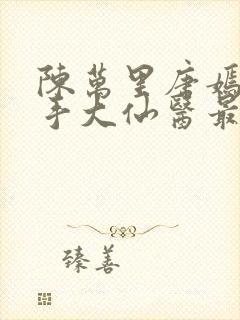 陳萬里唐嫣
手大仙醫最
臻善